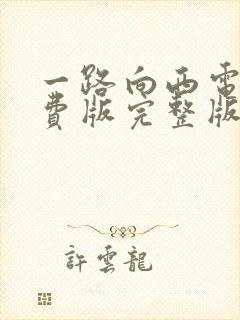 一路向西電
費版完整版
許雲龍